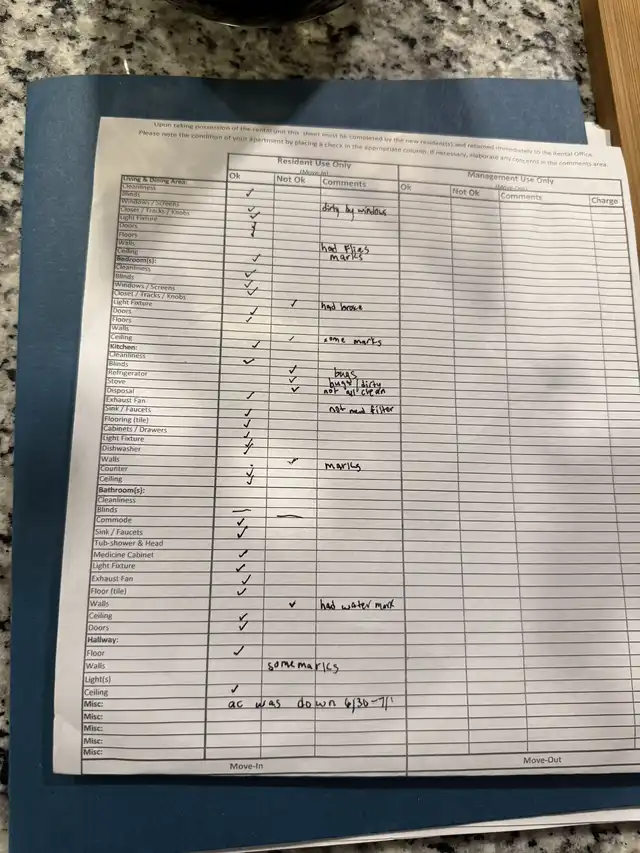 Upon taking possession of the rental unit this sheet must be completed by the new resident(s) and returned immediately to the Rental Office.
Please note the condition of your apartment by placing a check in the appropriate column. If necessary, elaborate any concerns in the comments area.
Resident Use Only Management Use Only
(Move-In) (Move-Out)
Ok Not Ok Comments Ok Not Ok Comments Charge
Living & Dining Area:
Cleanliness ✓
Blinds
Windows / Screens ✓ dirty by windows
Closet / Tracks / Knobs ✓
Light Fixture ✓
Doors ✓
Floors
Walls had flies
Ceiling marks
Bedroom(s): ✓
Cleanliness ✓
Blinds ✓
Windows / Screens ✓
Closet / Tracks / Knobs
Light Fixture ✓ had broke
Doors ✓
Floors ✓
Walls
Ceiling ✓ some marks
Kitchen: ✓
Cleanliness
Blinds ✓
Refrigerator ✓ bugs
Stove ✓ bugs / dirty
Disposal ✓ not all clean
Exhaust Fan ✓
Sink / Faucets ✓ not new filter
Flooring (tile) ✓
Cabinets / Drawers ✓
Light Fixture ✓
Dishwasher ✓
Walls ✓ marks
Counter ✓
Ceiling ✓
Bathroom(s):
Cleanliness
Blinds — —
Commode ✓
Sink / Faucets ✓
Tub-shower & Head
Medicine Cabinet ✓
Light Fixture ✓
Exhaust Fan ✓
Floor (tile) ✓
Walls ✓ had water mark
Ceiling ✓
Doors ✓
Hallway:
Floor ✓
Walls some marks
Light(s)
Ceiling ✓
Misc: ac was down 6/30-7/1
Misc:
Misc:
Misc:
Misc:
Move-In Move-Out